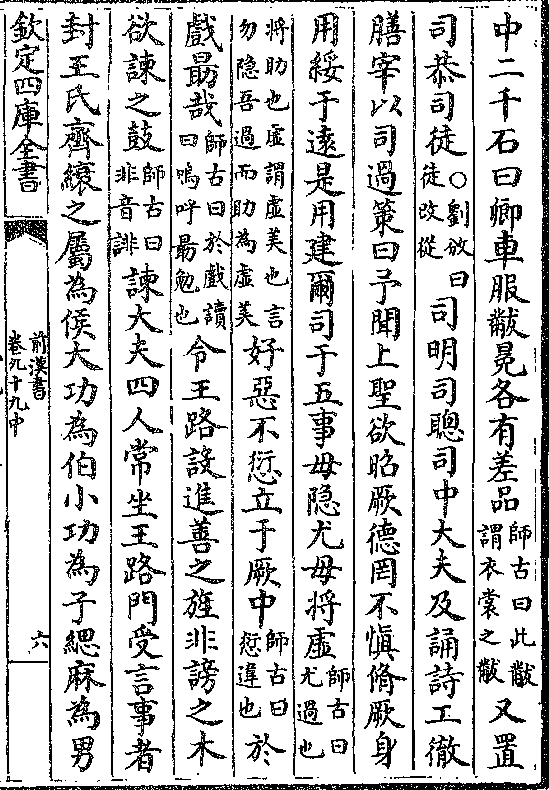 中二千石曰卿車服黻冕各有差品師古曰此黻謂衣裳之黻又置
司恭司徒○劉攽曰徒改從司明司聰司中大夫及誦詩工徹
膳宰以司過策曰予聞上聖欲昭厥德罔不慎脩厥身
用綏于遠是用建爾司于五事毋隐尤毋將虛師古曰尤過也
將助也虛謂虛美也言勿隐吾過而助為虛美好惡不愆立于厥中師古曰愆違也於
戲勗哉師古曰於戲讀曰嗚呼勗勉也令王路設進善之旌非謗之木
欲諫之鼓師古曰非音誹諫大夫四人常坐王路門受言事者
封王氏齊縗之屬為侯大功為伯小功為子緦麻為男
欽定四庫全書
前漢書
卷九十九中
六